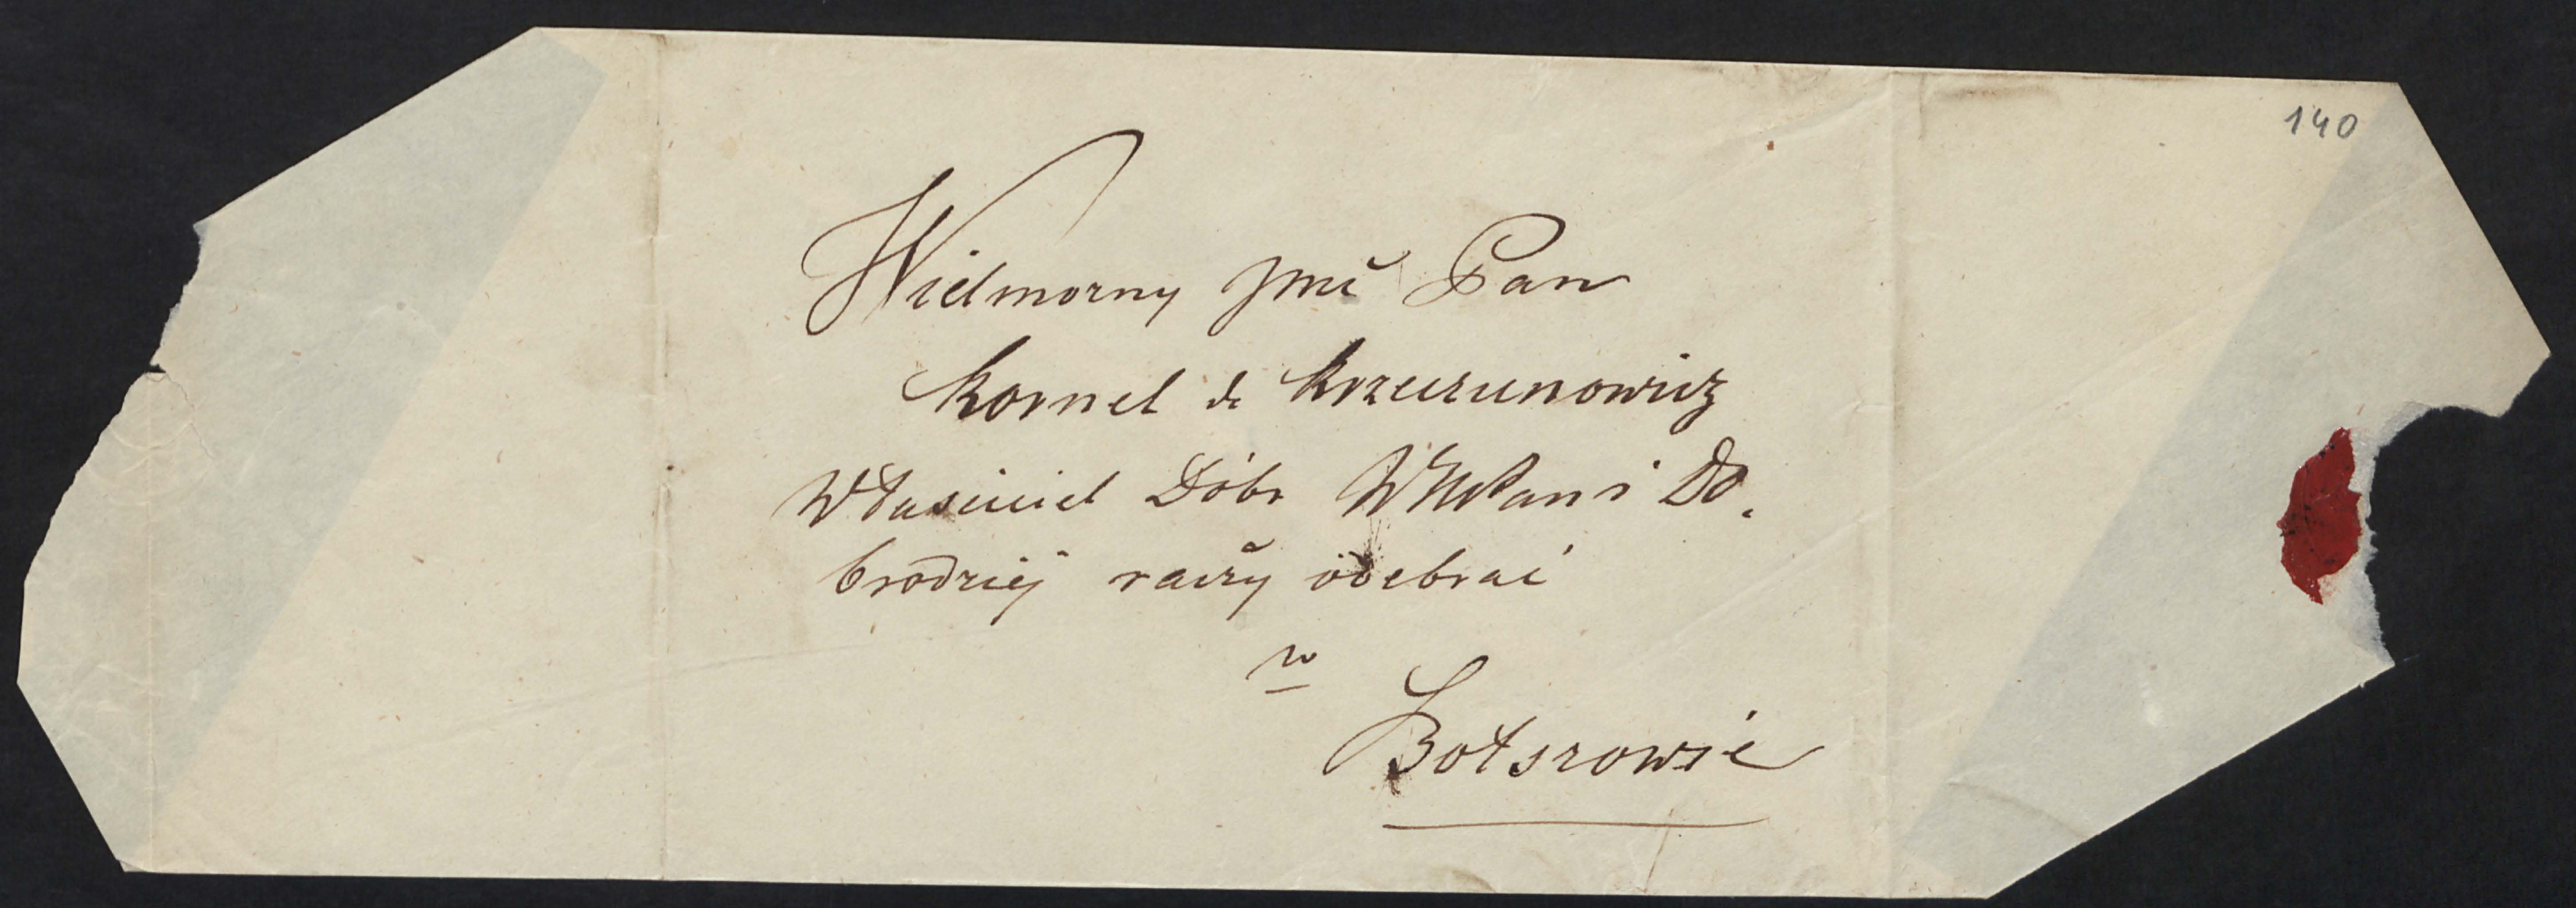 140
Wielmożny Jmć Pan
Kornel de Krzeczunowicz
Właściciel Dóbr W Pan i Do.
brodziej raczy odebrać
w
Bołszowie